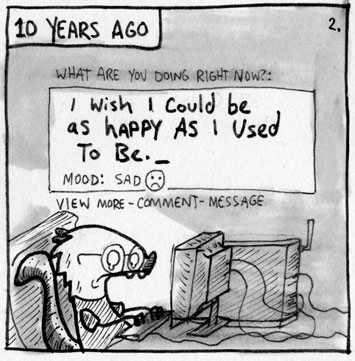 10 YEARS AGO
2.
WHAT ARE YOU DOING RIGHT NOW?:
I WiSH I COULD be
as hAPPY AS I USed
To Be._
MOOD: SAD
VIEW MORE - COMMENT - MESSAGE